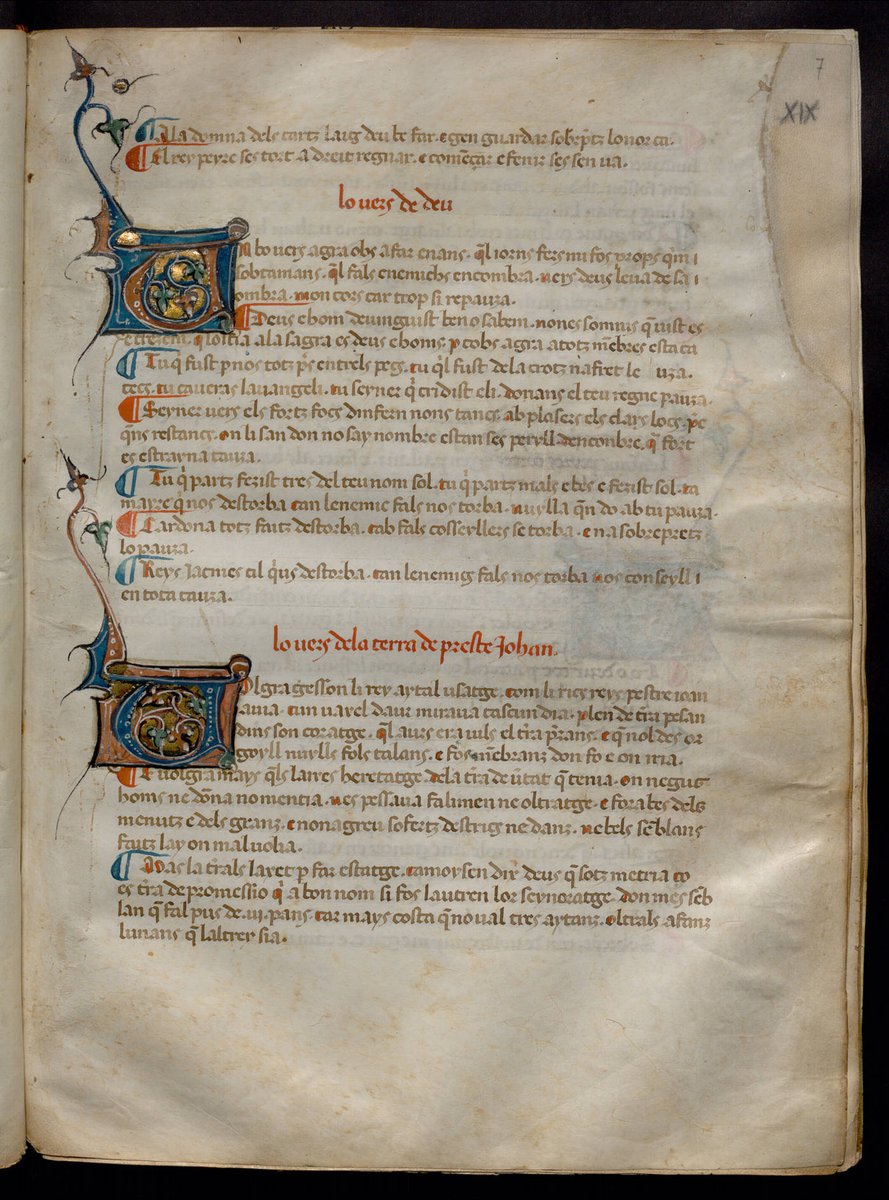 7
XIX
A la domna dels cartz laug deu be far. e gen guardar sobrp̃tz lonor ca.
El rey peyre ses tort a dreit regnar. e comẽçar e fenir ses sen ua.
lo uers de deu
A bo uers agra obs a far enans. q̃l iorns fers mi fos prop̃s q̃m i
sobtamans. q̃l fals enemichs encombra. uers deus leua de sa i
ombra. mon cors car trop si repauza.
Deus e hom deuinguist ben o sabem. non es somnis q̃ uist es
e crezem. q̃ lostia a la sagra es deus e homs. p cobs agra a totz mẽbres esta ca
Tu q̃ fust p nos totz p̃s entrels pegs. tu q̃l fust de la crotz nafret le uza.
cecs. tu caueras lauangeli. tu seyner q̃ cridist eli. donans el teu regne pauza.
Seyner uers els fortz focs dinfern nons tancs. ab plasers els clars locs. p̃c
q̃ns restancs. on li san don no say nombre estan ses peryll dencombre. q̃ fort
es estrayna cauza.
Tu q̃ partz fezist tres del teu nom sol. tu q̃ partz mals e bes e fezist sol. ta
mayre q̃ nos destorba can lenemic fals nos torba. uuylla q̃n do ab tu pauza.
Cardona totz faitz destorba. cab fals cosseyllers se torba. e na sobrepretz
lo pauza.
Reys Jacmes cil q̃us destorba. can lenemig fals nos torba uos conseyll i
en tota cauza.
lo uers dela terra de preste Johan.
Olgra gesson li rey aytal usatge. com li rics reys pestre ioan
auia. cun uayel daur miraua cascun dia. plen de tr̃a pesan
dins son coratge. q̃l aurs era uils el tr̃a p̃rans. e q̃ nol des or
goyll nuylls fols talans. e fos mẽbranz don fo e on iria.
E uolgra mays q̃ls laires heretatge dela tr̃a de ũtat q̃ tenia. on negus
homs ne dõna no mentia. nes pessaua falimen ne oltratge. e fora bes dels
menutz e dels granz. e non agreu sofertz destrig ne danz. ne bels sẽblans
faitz lay on mal uolia.
Mas la tr̃als layet p far estatge. camor sen dir deus q̃ sotz metria co
es tr̃a de promessio q̃ a bon nom si fos lautren lor seynoratge. don mes sẽb
lan q̃ fal pus de .vii. pans. car mays costa q̃ no ual tres aytanz. oltrals afanz
lunans q̃ laltrey sia.